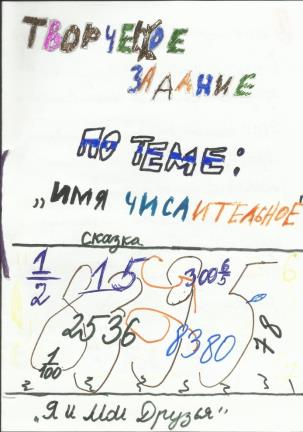 ТВОРЧЕСКОЕ
ЗАДАНИЕ
ПО ТЕМЕ:
„ИМЯ ЧИСЛИТЕЛЬНОЕ
сказка
1/2 15 300 6/5
2536 8380 78
1/100
„Я и Мои Друзья"